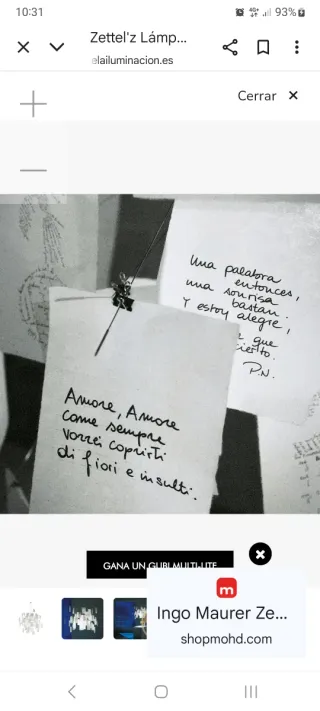 10:31
4G+
93%
Zettel'z Lámp...
elailuminacion.es
Cerrar ×
Una palabra
entonces,
una sonrisa
bastan.
Y estoy alegre,
que
cierto.
P.N.
Amore, Amore
come sempre
vorrei coprirti
di fiori e insulti.
GANA UN GUBI MULTI-LITE
m
Ingo Maurer Ze...
shopmohd.com